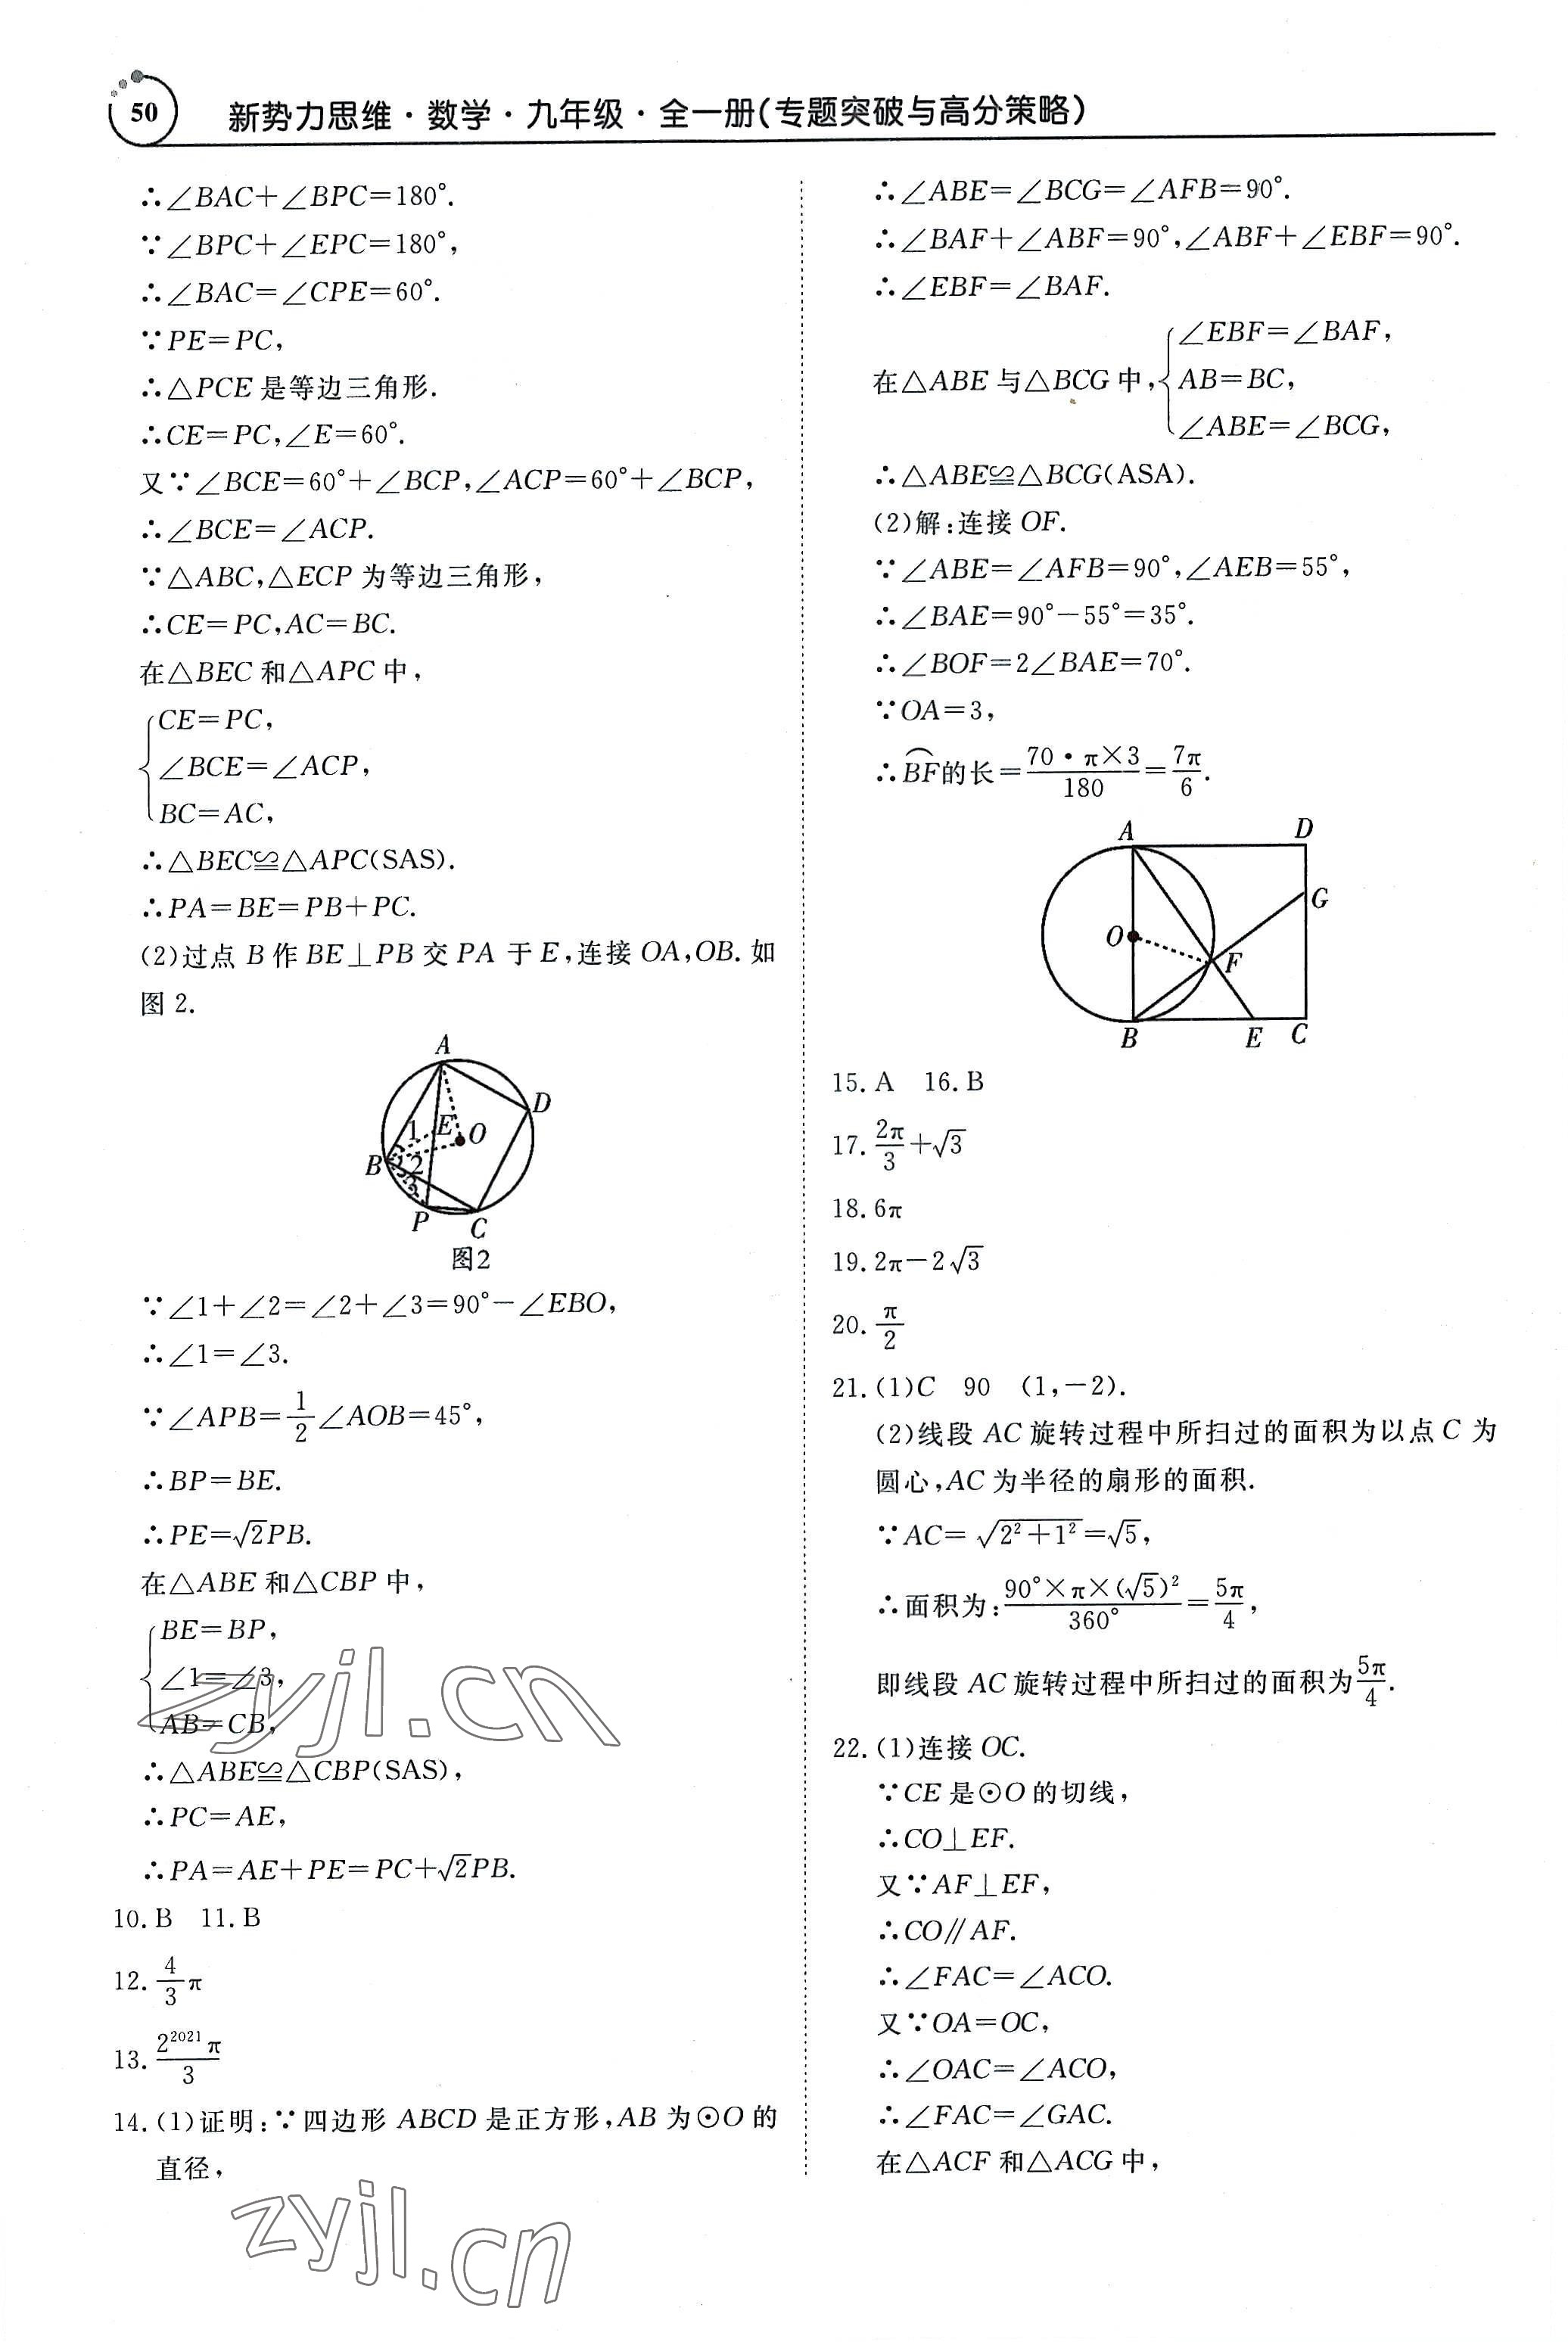 50
新势力思维·数学·九年级·全一册(专题突破与高分策略)
∴∠BAC+∠BPC=180°.
∵∠BPC+∠EPC=180°,
∴∠BAC=∠CPE=60°.
∵PE=PC,
∴△PCE是等边三角形.
∴CE=PC,∠E=60°.
又∵∠BCE=60°+∠BCP,∠ACP=60°+∠BCP,
∴∠BCE=∠ACP.
∵△ABC,△ECP为等边三角形,
∴CE=PC,AC=BC.
在△BEC和△APC中,
CE=PC,
∠BCE=∠ACP,
BC=AC,
∴△BEC≌△APC(SAS).
∴PA=BE=PB+PC.
(2)过点B作BE⊥PB交PA于E,连接OA,OB.如
图2.
A
D
E
O
1
B
2
3
P
C
图2
∵∠1+∠2=∠2+∠3=90°-∠EBO,
∴∠1=∠3.
∵∠APB=1/2∠AOB=45°,
∴BP=BE.
∴PE=√2PB.
在△ABE和△CBP中,
BE=BP,
∠1=∠3,
AB=CB,
∴△ABE≌△CBP(SAS),
∴PC=AE,
∴PA=AE+PE=PC+√2PB.
10.B 11.B
12.4/3π
13.2²⁰²¹π/3
14.(1)证明:∵四边形ABCD是正方形,AB为⊙O的
直径,
∴∠ABE=∠BCG=∠AFB=90°.
∴∠BAF+∠ABF=90°,∠ABF+∠EBF=90°.
∴∠EBF=∠BAF.
∠EBF=∠BAF,
在△ABE与△BCG中,AB=BC,
∠ABE=∠BCG,
∴△ABE≌△BCG(ASA).
(2)解:连接OF.
∵∠ABE=∠AFB=90°,∠AEB=55°,
∴∠BAE=90°-55°=35°.
∴∠BOF=2∠BAE=70°.
∵OA=3,
∴⌒BF的长=70·π×3/180=7π/6.
A
D
G
O
F
B
E
C
15.A 16.B
17.2π/3+√3
18.6π
19.2π-2√3
20.π/2
21.(1)C 90 (1,-2).
(2)线段AC旋转过程中所扫过的面积为以点C为
圆心,AC为半径的扇形的面积.
∵AC=√(2²+1²)=√5,
∴面积为:90°×π×(√5)²/360°=5π/4,
即线段AC旋转过程中所扫过的面积为5π/4.
22.(1)连接OC.
∵CE是⊙O的切线,
∴CO⊥EF.
又∵AF⊥EF,
∴CO∥AF.
∴∠FAC=∠ACO.
又∵OA=OC,
∴∠OAC=∠ACO,
∴∠FAC=∠GAC.
在△ACF和△ACG中,
zyjl.cn
zyjl.cn